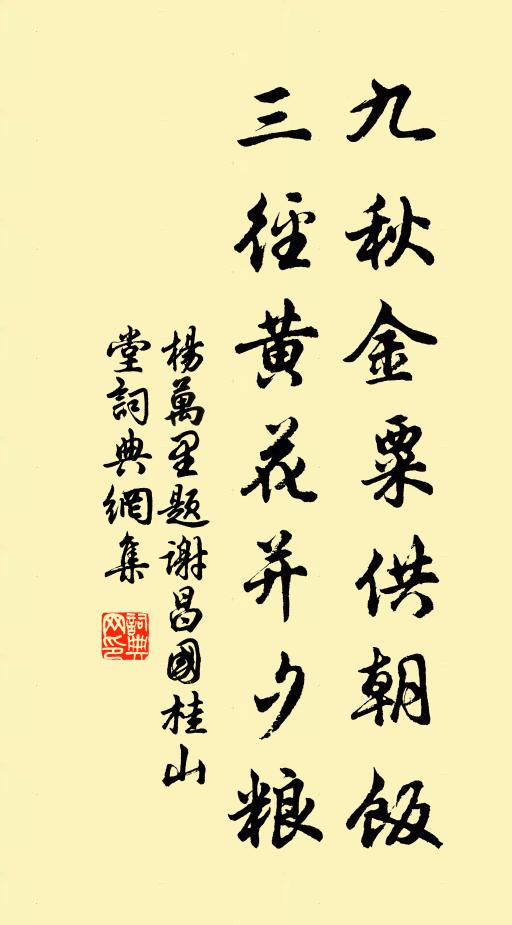 九秋金粟供朝飯
三徑黃花并夕粮
楊萬里题謝昌國桂山
堂詞典網集
詞典网印